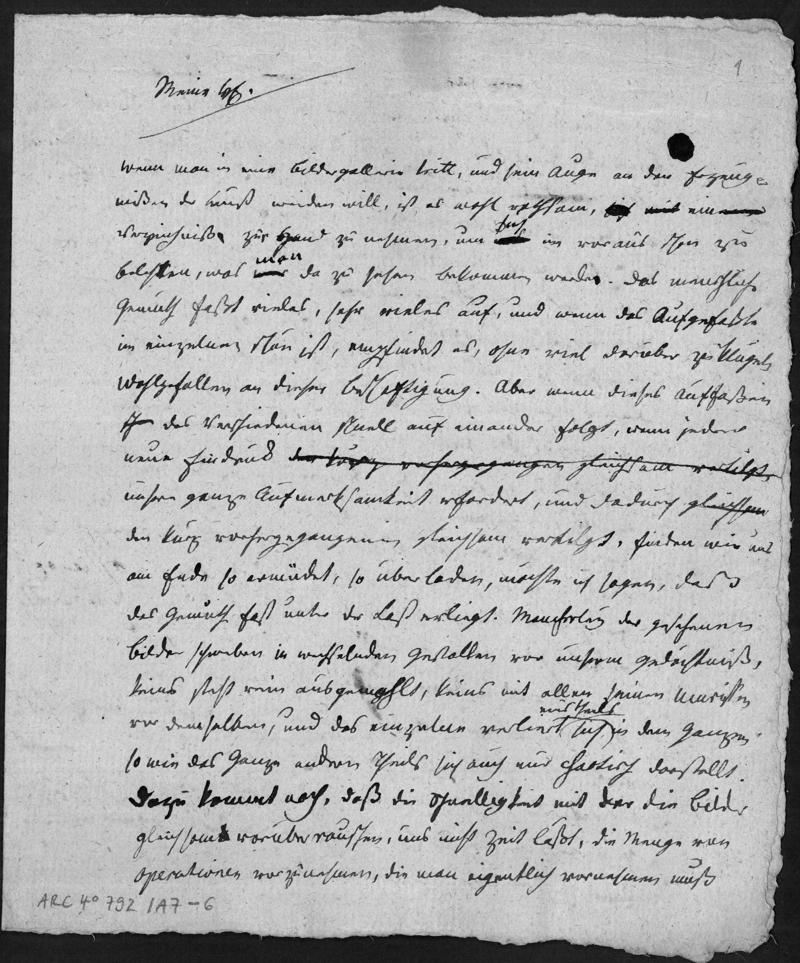 1
Meine H.
Wenn man in eine Bildergallerie tritt, und sein Auge an den Erzeug-
nißen der Kunst weiden will, ist es wohl rathsam, sich mit ein
Verzeichniß zur Hand zu nehmen, um sich im voraus schon zu
belehren, was man da zu sehen bekommen werde. Das menschliche
Gemüth faßt vieles, sehr vieles auf, und wenn das Aufgefaßte
im einzelnen schön ist, empfindet es, ohne viel darüber zu klügeln
Wohlgefallen an dieser Beschäftigung. Aber wenn dieses Auffaßen
des Verschiedenen schnell auf einander folgt, wenn jeder
neue Eindruck den kurz vorhergegangenen gleichsam vertilgt,
unsere ganze Aufmerksamkeit erfordert, und dadurch gleichsam
den kurz vorhergegangenen gleichsam vertilgt, finden wir uns
am Ende so ermüdet, so überladen, möchte ich sagen, daß
das Gemüth fast unter der Last erliegt. Mancherley der gesehenen
Bilder schweben in wechselnden Gestalten vor unserm Gedächtniß,
keins steht rein ausgemahlt, keins mit allen seinen
vor demselben, und das einzelne verliert eines Theils sich in dem Ganzen
so wie das Ganze andern Theils sich auch nur chaotisch darstellt.
Dazu kommt noch, daß die Schnelligkeit mit der die Bilder
gleichsam vorüberrauschen, uns nicht Zeit läßt, die Menge von
Operationen vorzunehmen, die man eigentlich vornehmen muß
ARC 4° 792 / A7-6